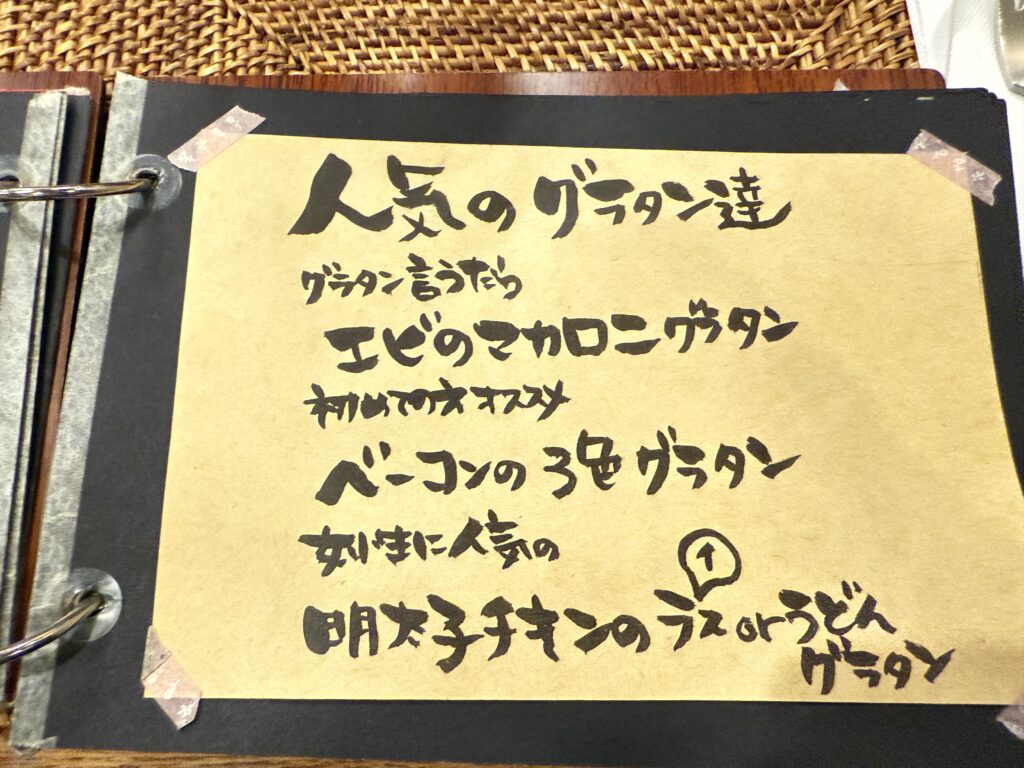 人気のグラタン達
グラタン言うたら
エビのマカロニグラタン
初めての方オススメ
ベーコンの3色グラタン
女性に人気の
明太子チキンのライスorうどん
グラタン